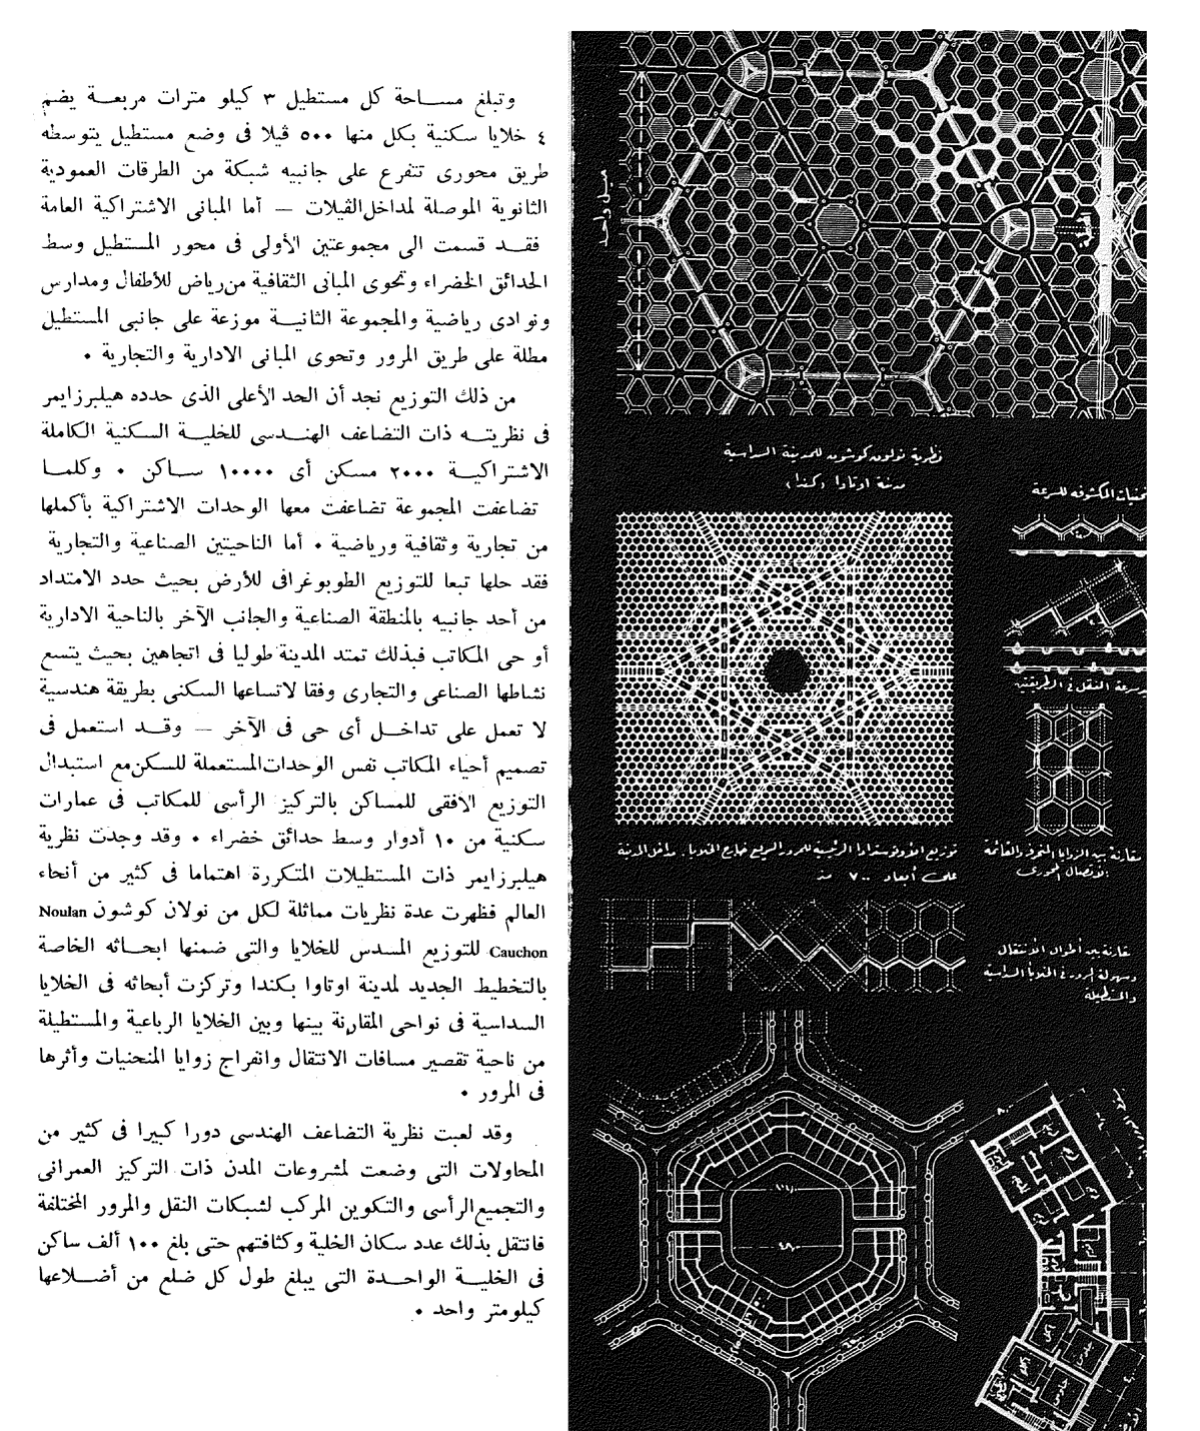 وتبلغ مساحة كل مستطيل ٣ كيلو مترات مربعة يضم
٤ خلايا سكنية بكل منها ٥٠٠ ڤيلا فى وضع مستطيل يتوسطه
طريق محورى تتفرع على جانبيه شبكة من الطرقات العمودية
الثانوية الموصلة لمداخل الڤيلات — أما المبانى الاشتراكية العامة
فقد قسمت الى مجموعتين الأولى فى محور المستطيل وسط
الحدائق الخضراء وتحوى المبانى الثقافية من رياض للأطفال ومدارس
ونوادى رياضية والمجموعة الثانية موزعة على جانبى المستطيل
مطلة على طريق المرور وتحوى المبانى الادارية والتجارية ٠
من ذلك التوزيع نجد أن الحد الأعلى الذى حدده هيلبرزايمر
فى نظريته ذات التضاعف الهندسى للخلية السكنية الكاملة
الاشتراكية ٢٠٠٠ مسكن أى ١٠٠٠٠ ساكن ٠ وكلما
تضاعفت المجموعة تضاعفت معها الوحدات الاشتراكية بأكملها
من تجارية وثقافية ورياضية ٠ أما الناحيتين الصناعية والتجارية
فقد حلها تبعا للتوزيع الطوبوغرافى للأرض بحيث حدد الامتداد
من أحد جانبيه بالمنطقة الصناعية والجانب الآخر بالناحية الادارية
أو حى المكاتب فبذلك تمتد المدينة طوليا فى اتجاهين بحيث يتسع
نشاطها الصناعى والتجارى وفقا لاتساعها السكنى بطريقة هندسية
لا تعمل على تداخل أى حى فى الآخر — وقد استعمل فى
تصميم أحياء المكاتب نفس الوحدات المستعملة للسكن مع استبدال
التوزيع الأفقى للمساكن بالتركيز الرأسى للمكاتب فى عمارات
سكنية من ١٠ أدوار وسط حدائق خضراء ٠ وقد وجدت نظرية
هيلبرزايمر ذات المستطيلات المتكررة اهتماما فى كثير من أنحاء
العالم فظهرت عدة نظريات مماثلة لكل من نولان كوشون Noulan
Cauchon للتوزيع المسدس للخلايا والتى ضمنها ابحاثه الخاصة
بالتخطيط الجديد لمدينة اوتاوا بكندا وتركزت أبحاثه فى الخلايا
السداسية فى نواحى المقارنة بينها وبين الخلايا الرباعية والمستطيلة
من ناحية تقصير مسافات الانتقال وانفراج زوايا المنحنيات وأثرها
فى المرور ٠
وقد لعبت نظرية التضاعف الهندسى دورا كبيرا فى كثير من
المحاولات التى وضعت لمشروعات المدن ذات التركيز العمرانى
والتجميع الرأسى والتكوين المركب لشبكات النقل والمرور المختلفة
فانتقل بذلك عدد سكان الخلية وكثافتهم حتى بلغ ١٠٠ ألف ساكن
فى الخلية الواحدة التى يبلغ طول كل ضلع من أضلاعها
كيلومتر واحد ٠
ميل واحد
نظرية نولون كوشون للمدينة السداسية
مدينة اوتاوا (كندا)
المكشوفه للسرعة
وسرعة النقل فى الطريقتين
مقارنة بين الزوايا المنفرجة والقائمة
الاتصال المحورى
توزيع الأوتوسترادا الرئيسية للمرور السريع خارج الخلايا . مداخل المدينة
على أبعاد ٧٠٠ متر
مقارنة بين أطوال الانتقال
وسهولة المرور فى الخلايا السداسية
والمستطيلة